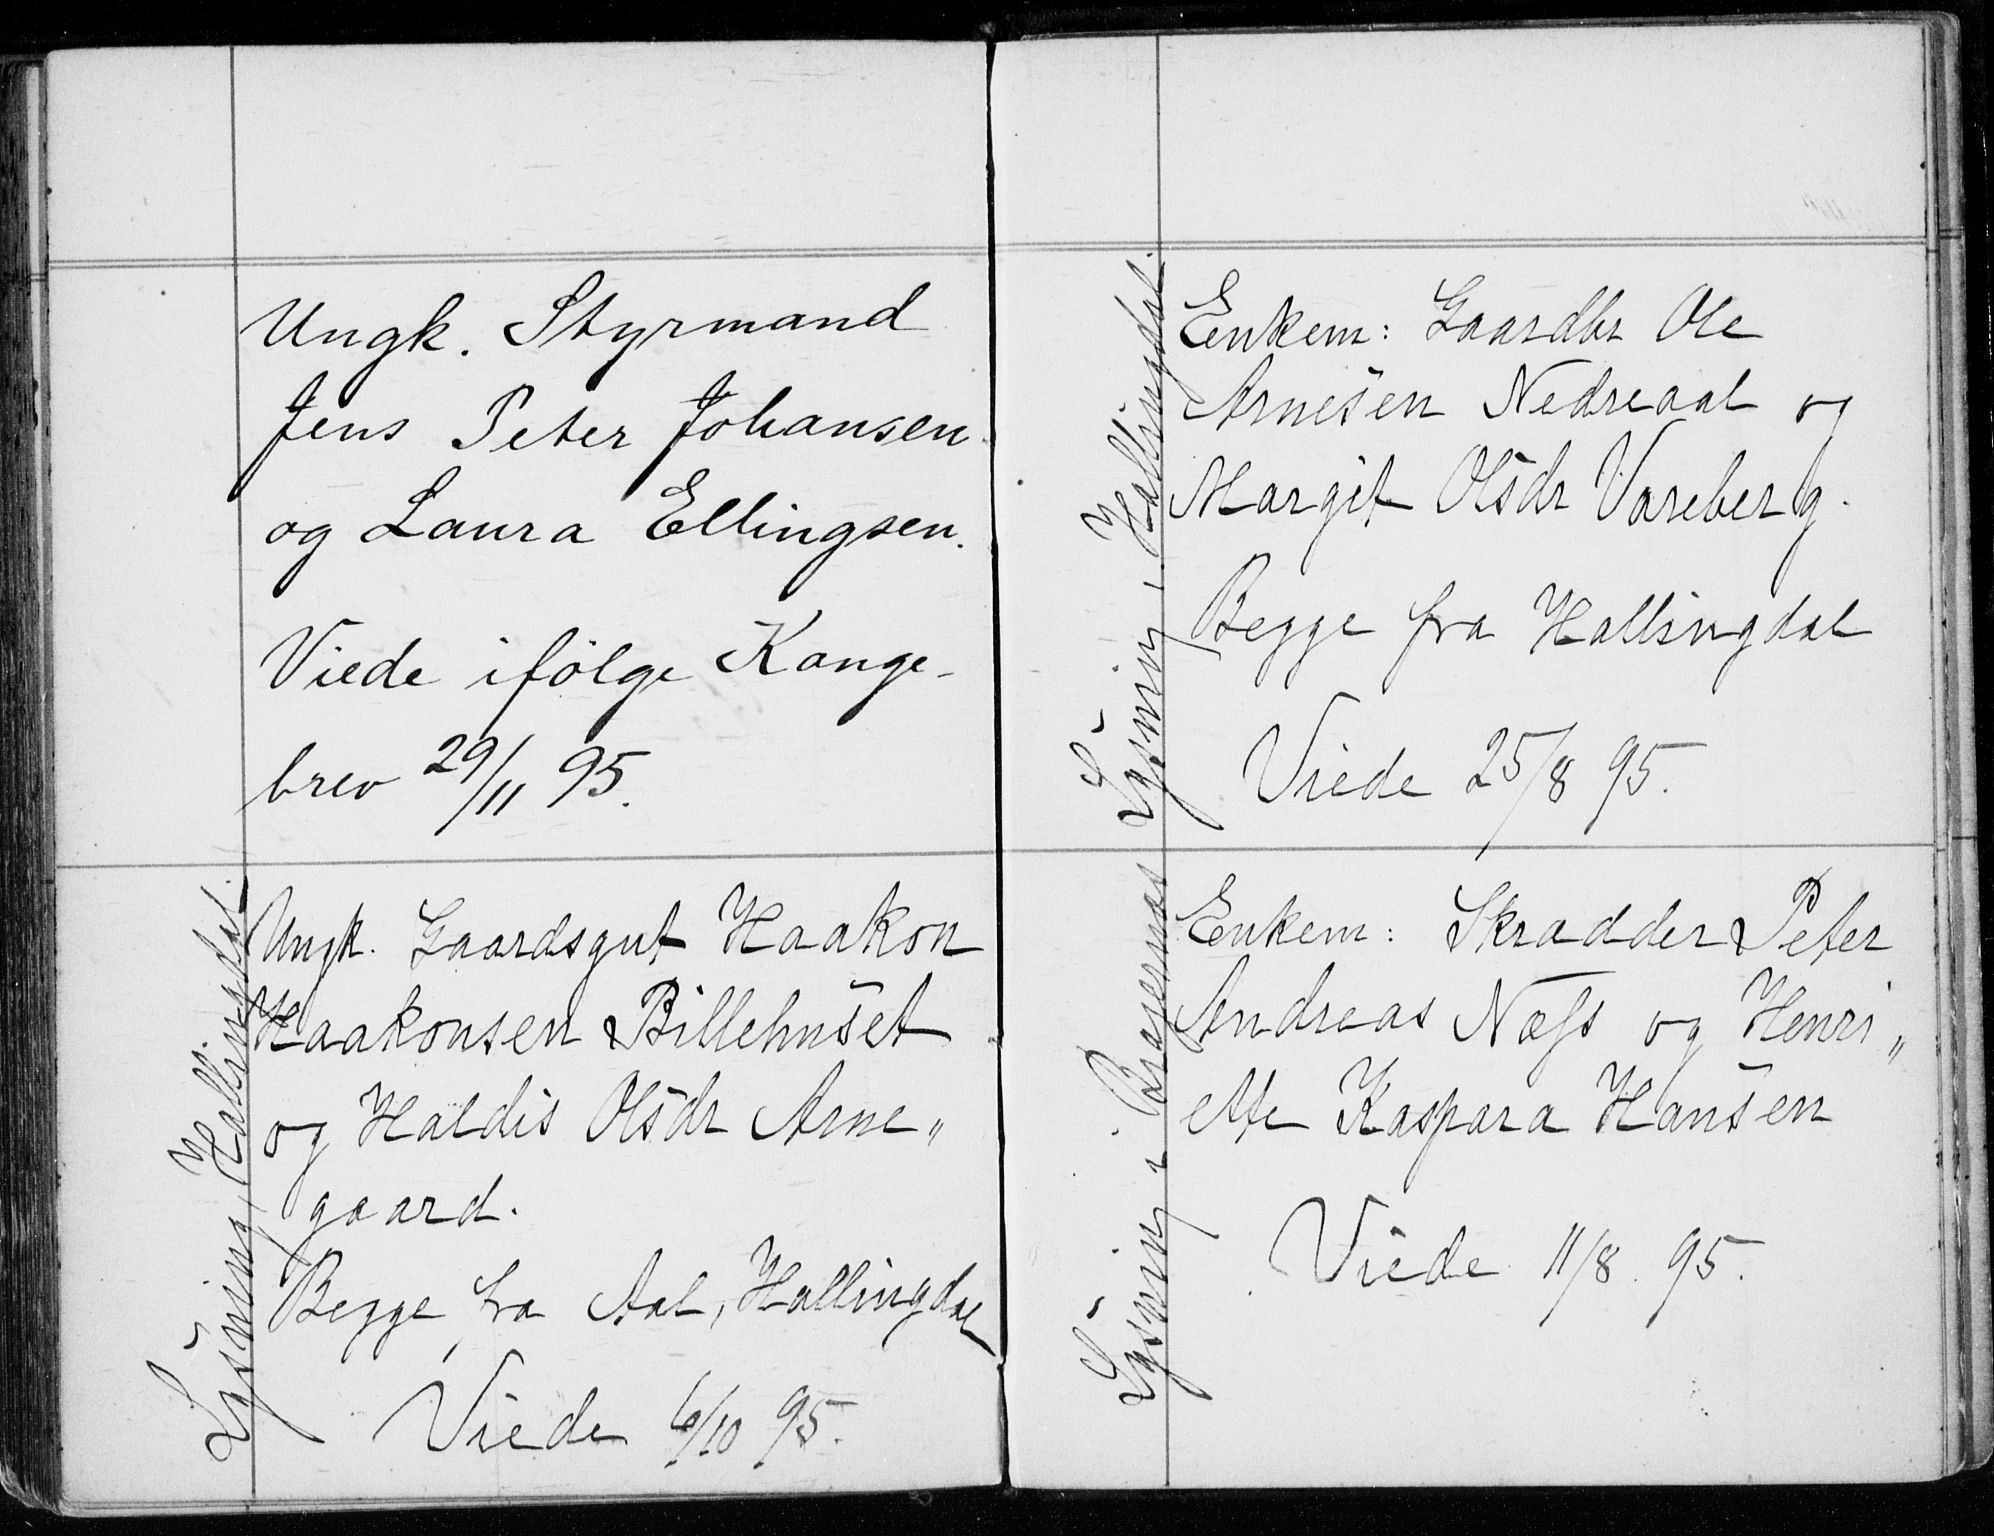 Ungk. Styrmand
Jens Peter Johansen
og Laura Ellingsen.
Viede ifölge Konge-
brev 29/11 95.
Lysning, Hallingdal.
Ungk. Gaardsgut Haakon
Haakonsen Billehuset
og Haldis Olsdr Arne„
gaard.
Begge fra Aal, Hallingdal
Viede 6/10 95.
Lysning, Hallingdal.
Enkem: Gaardbr Ole
Arnesen Nedreaal og
Margit Olsdr Vareberg.
Begge fra Hallingdal
Viede 25/8 95.
Lysning i Bragernæs
Enkem: Skrædder Peter
Andreas Næss og Henri„
ette Kaspara Hansen
Viede 11/8 95.